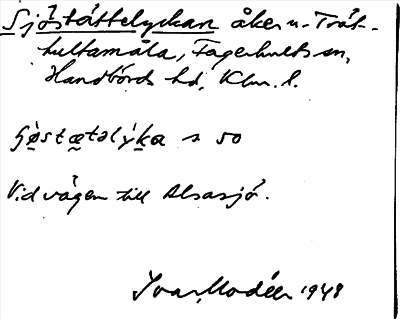 Sjöståttelyckan åker u. Tråt-
hultamåla, Fagerhults sn,
Handbörds hd, Klm. l.
s 50
Vid vägen till Alsasjö.
Ivar Modéer 1948